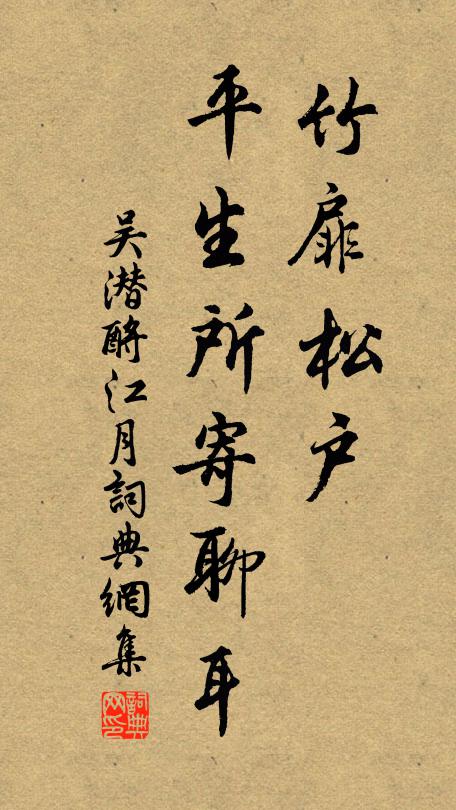 竹扉松户
平生所寄聊耳
吴潜酹江月詞典網集
詞典网印